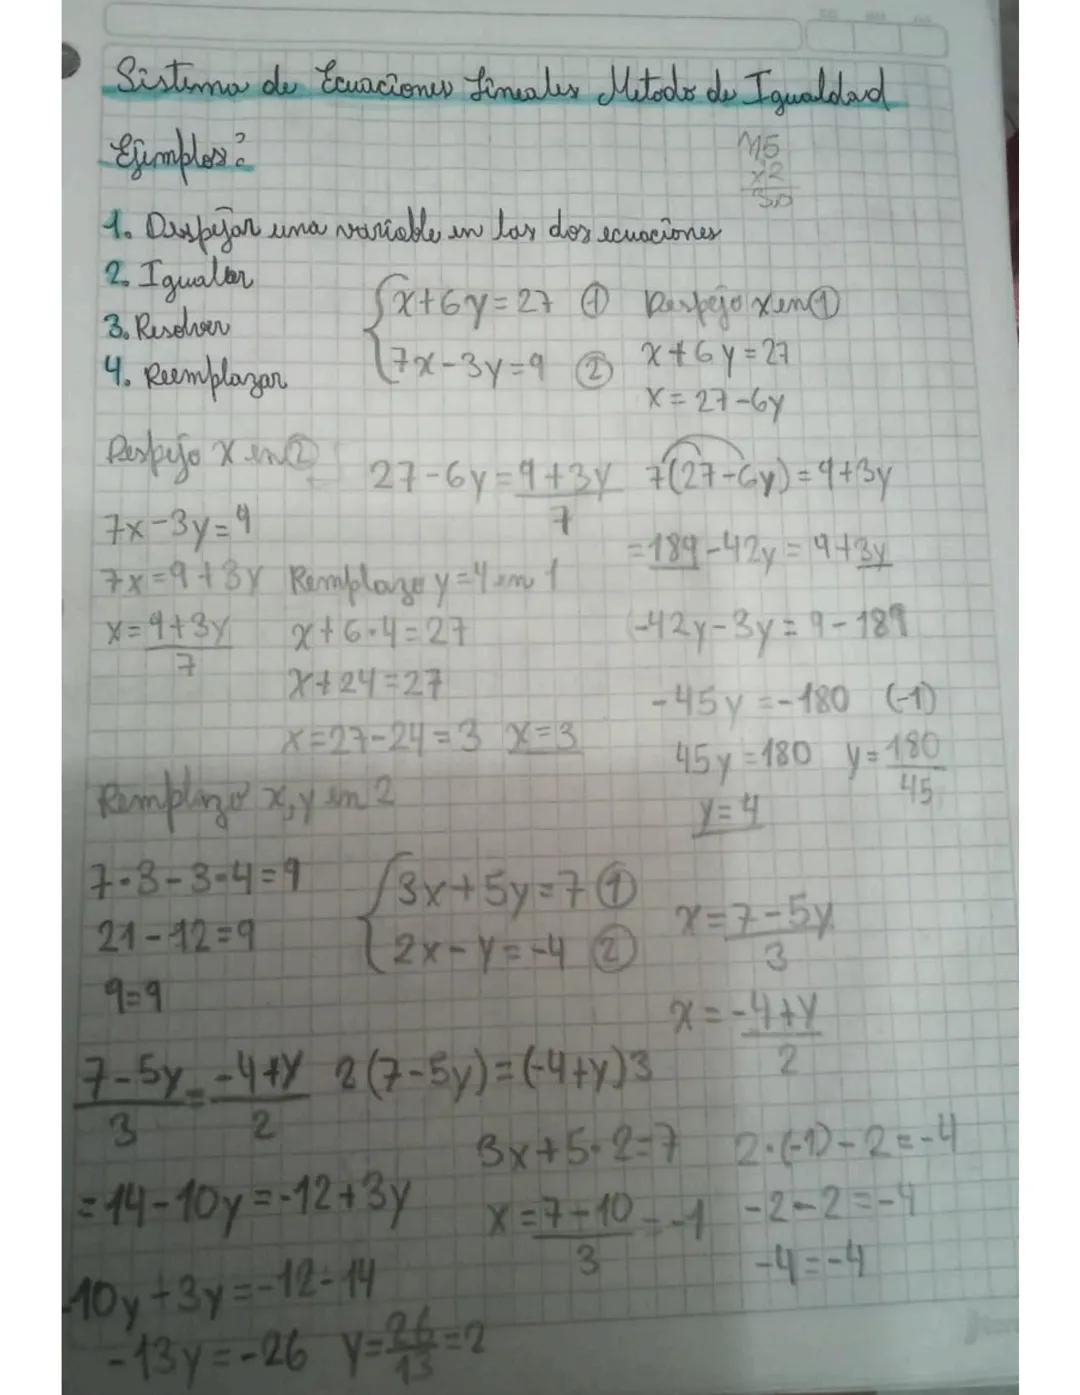 Sistema de Ecuaciones Lineales Metodo de Igualdad
Ejemplos:
15
x2
30
1. Despejar una variable en las dos ecuaciones
2. Igualar
3. Resolver
4. Reemplazar
x+6y=27 ①
7x-3y=9 ②
Despejo x en ①
x+6y=27
x=27-6y
Despejo x en ②
7x-3y=9
7x=9+3y
x=9+3y
7
27-6y=9+3y
7
7(27-6y)=9+3y
=189-42y=9+3y
-42y-3y=9-189
-45y=-180 (-1)
45y=180 y=180
45
y=4
Remplazo y=4 en 1
x+6·4=27
x+24=27
x=27-24=3 x=3
Remplazo x,y en 2
7·3-3·4=9
21-12=9
9=9
3x+5y=7 ①
2x-y=-4 ②
x=7-5y
3
x=-4+y
2
7-5y=-4+y
3 2
2(7-5y)=(-4+y)3
=14-10y=-12+3y
-10y+3y=-12-14
-13y=-26 y=26=2
13
3x+5·2=7
x=7-10=-1
3
2·(-1)-2=-4
-2-2=-4
-4=-4